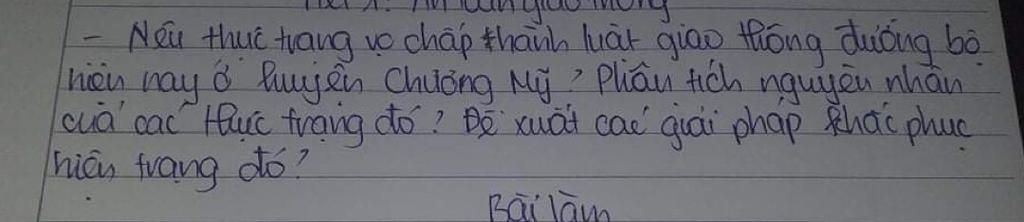 An toàn giao thông
- Nêu thực trạng về chấp thành luật giao thông đường bộ
hiện nay ở huyện Chương Mỹ? Phân tích nguyên nhân
của các thực trạng đó? Đề xuất các giải pháp khắc phục
hiện trạng đó?
Bài làm